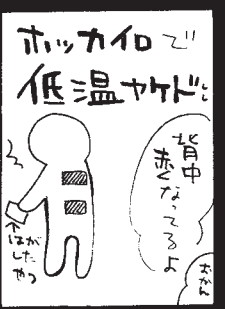 ホッカイロで
低温ヤケド
背中
赤くなってるよ
おかん
↑はが
した
やつ